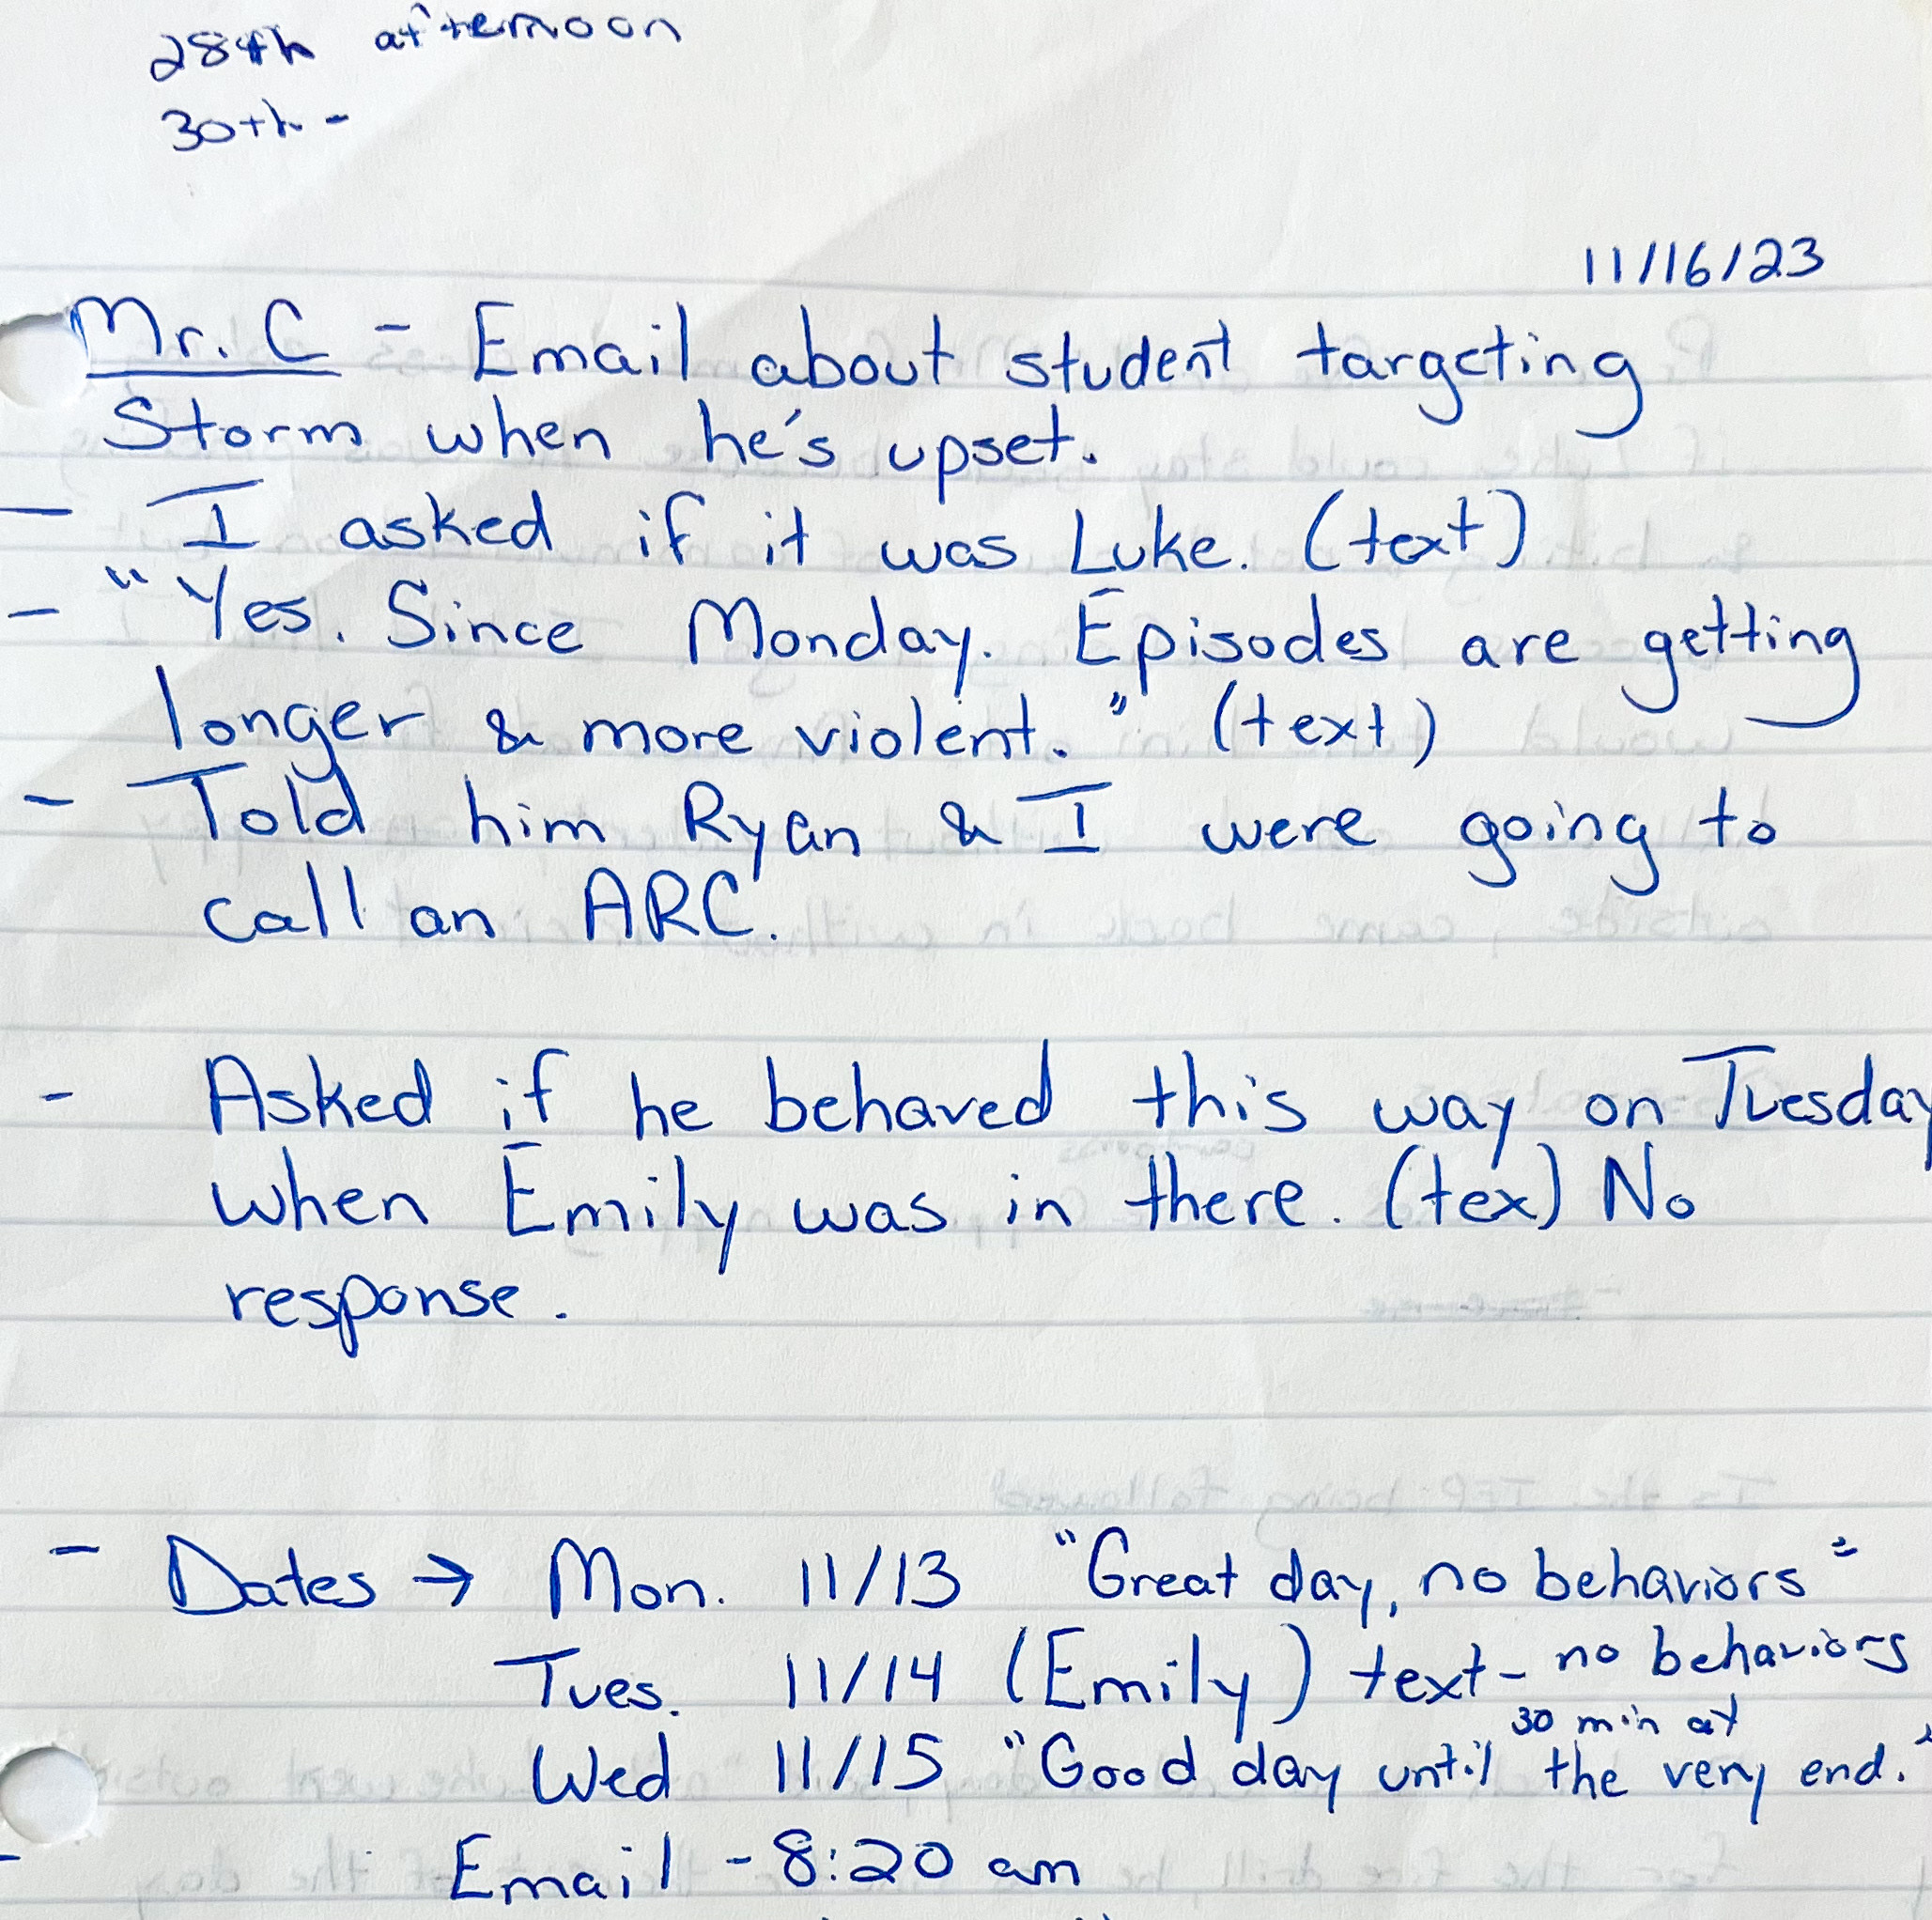 28th afternoon
30th -
11/16/23
Mr. C - Email about student targeting
Storm when he's upset.
- I asked if it was Luke. (text)
- "Yes. Since Monday. Episodes are getting
longer & more violent." (text)
- Told him Ryan & I were going to
call an ARC.
- Asked if he behaved this way on Tuesday
when Emily was in there. (tex) No
response.
- Dates → Mon. 11/13 "Great day, no behaviors"
Tues. 11/14 (Emily) text - no behaviors
30 min at
Wed 11/15 "Good day until the very end."
- Email - 8:20 am